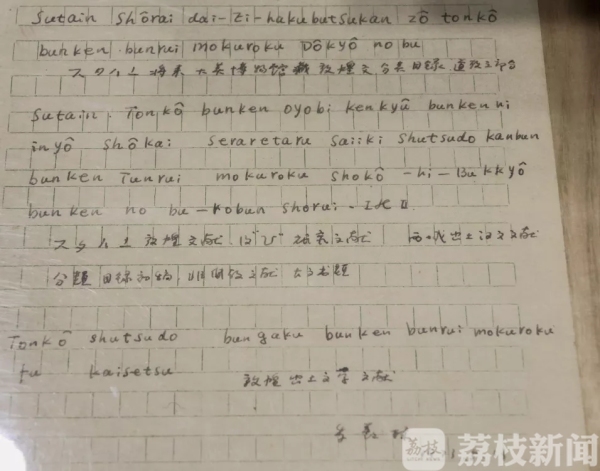 Sutain Shōrai dai-Ei-hakubutsukan zô tonkô
bunken bunrui mokuroku Dôkyô no bu
スタイン将来大英博物館藏敦煌文分类目録 道教之部
Sutain Tonkô bunken oyobi kenkyû bunken ni
inyô shôkai seraretaru Saiiki shutsudo kanbun
bunken Tunrui mokuroku shokô -hi-Bukkyô
bunken no bu-kobun shorui
スタイン敦煌文献及び研究文献 西域出土汉文文献
分類目録初稿 非佛教文献
Tonkô shutsudo bungaku bunken bunrui mokuroku
fu kaisetsu 敦煌出土文学文献
荔枝新闻
荔枝